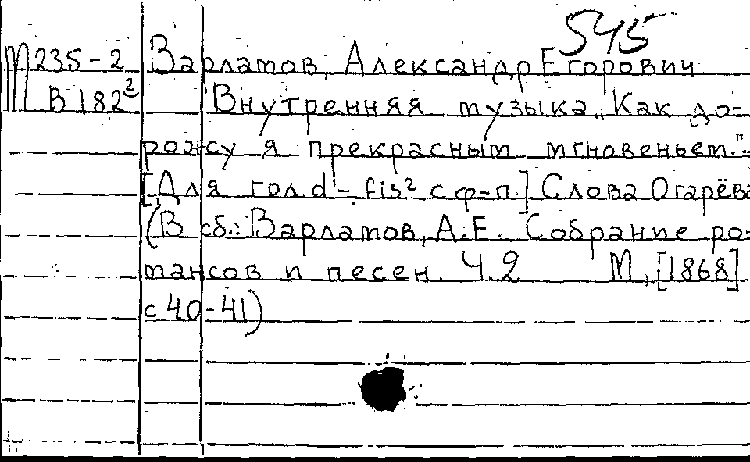 545
М 235-2 Варламов, Александр Егорович
В 182² Внутренняя музыка. „Как до-
рожу я прекрасным мгновеньем."
[Для гол d¹-fis² с ф-п.] Слова Огарёва
(В сб.: Варламов, А.Е. Собрание ро-
мансов и песен. Ч.2 М., [1868]
с 40-41)